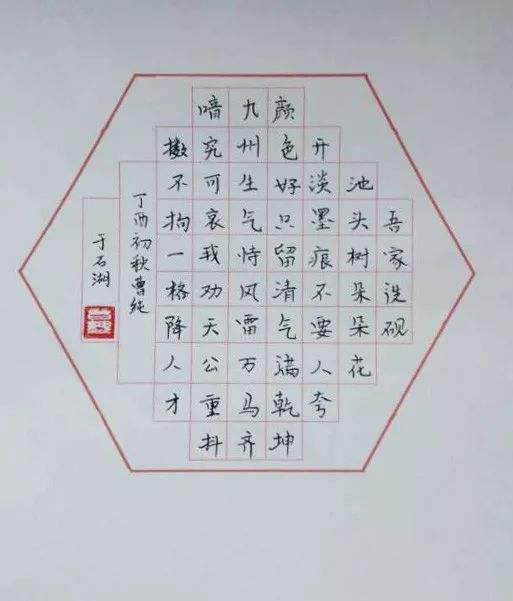 吾家洗砚
池头树朵朵花
开淡墨痕不要人夸
颜色好只留清气满乾坤
九州生气恃风雷万马齐
喑究可哀我劝天公重抖
擞不拘一格降人才
丁酉初秋曹纯
于石湖